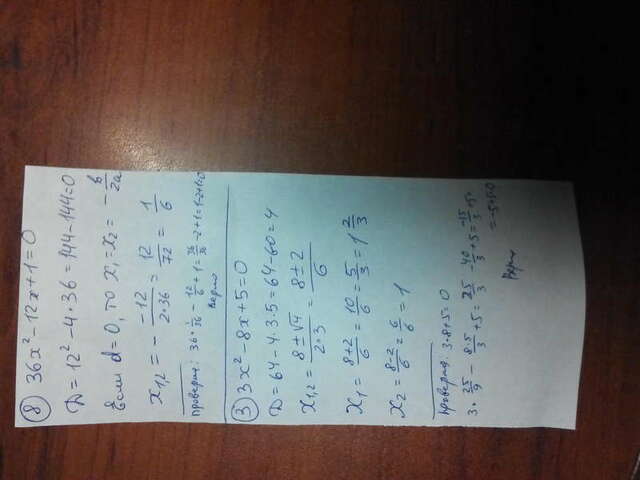 ⑧ 36x² - 12x + 1 = 0
D = 12² - 4·36 = 144 - 144 = 0
Если d = 0, то x₁ = x₂ = -b/2a
x₁,₂ = - -12/2·36 = 12/72 = 1/6
Проверим: 36·1/36 - 12/6 + 1 = 36/36 - 2 + 1 = 1 - 2 + 1 = 0
Верно
③ 3x² - 8x + 5 = 0
D = 64 - 4·3·5 = 64 - 60 = 4
x₁,₂ = 8±√4/2·3 = 8±2/6
x₁ = 8+2/6 = 10/6 = 5/3 = 1 2/3
x₂ = 8-2/6 = 6/6 = 1
Проверим: 3-8+5=0
3·25/9 - 8·5/3 + 5 = 25/3 - 40/3 + 5 = -15/3 + 5 =
= -5+5=0
Верно